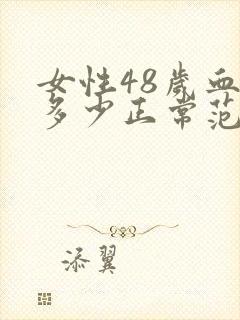 女性48岁血
多少正常范
添翼